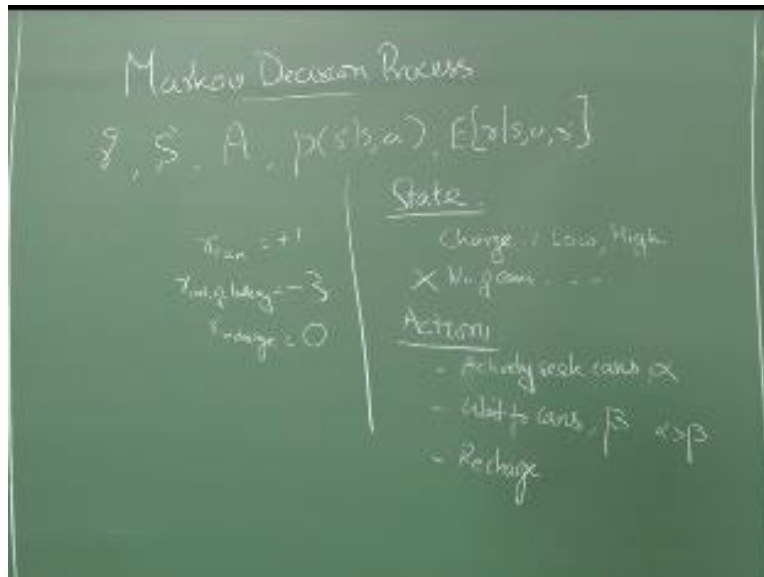 Markov Decision Process
γ, S, A, p(s'|s,a), E[r|s,a,s']
r_can = +1
r_out of battery = -3
r_recharge = 0
State
Charge : Low, High
X No. of cans - - -
Actions
- Actively seek cans, α
- Wait for cans, β α>β
- Recharge